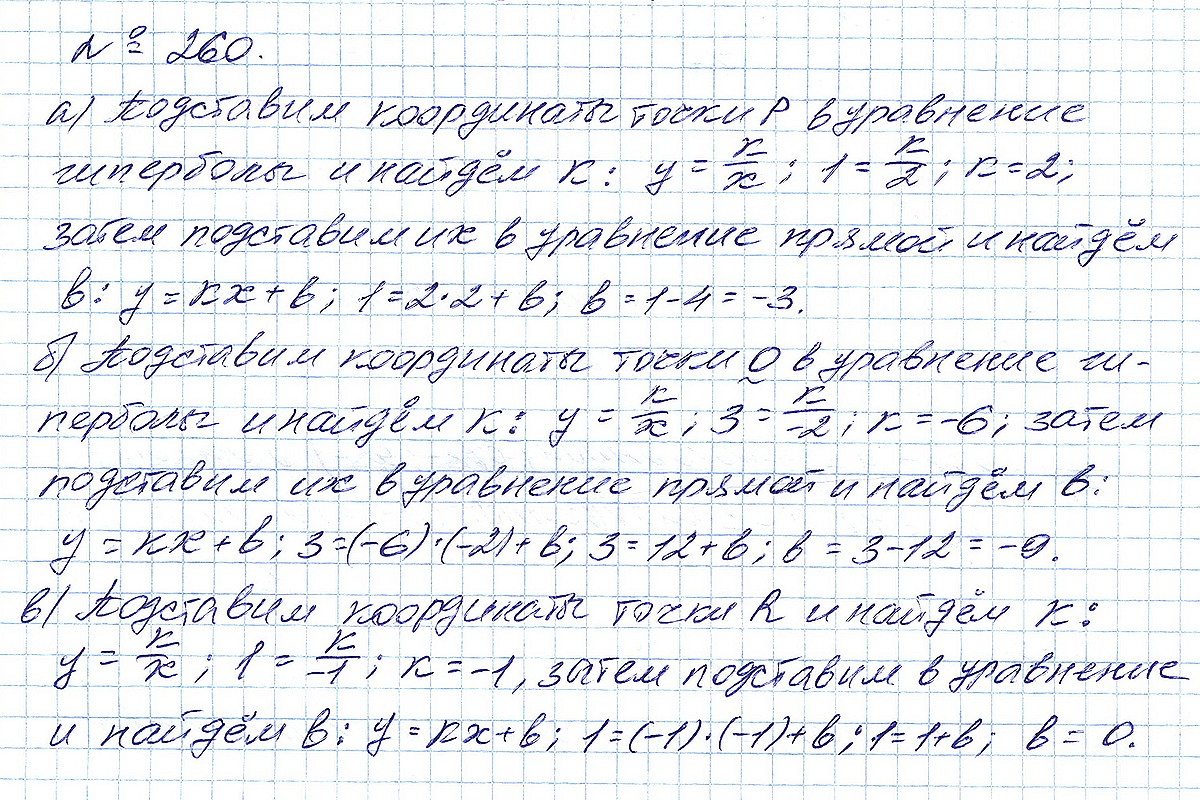 № 260.
а) Подставим координаты точки P в уравнение
гиперболы и найдём к: y = к/x; 1 = к/2; к = 2;
затем подставим их в уравнение прямой и найдём
в: y = кx + в; 1 = 2·2 + в; в = 1-4 = -3.
б) Подставим координаты точки Q в уравнение ги-
перболы и найдём к: y = к/x; 3 = к/-2; к = -6; затем
подставим их в уравнение прямой и найдём в:
y = кx + в; 3 = (-6)·(-2) + в; 3 = 12 + в; в = 3-12 = -9.
в) Подставим координаты точки R и найдём к:
y = к/x; 1 = к/-1; к = -1, затем подставим в уравнение
и найдём в: y = кx + в; 1 = (-1)·(-1) + в; 1 = 1+в; в = 0.